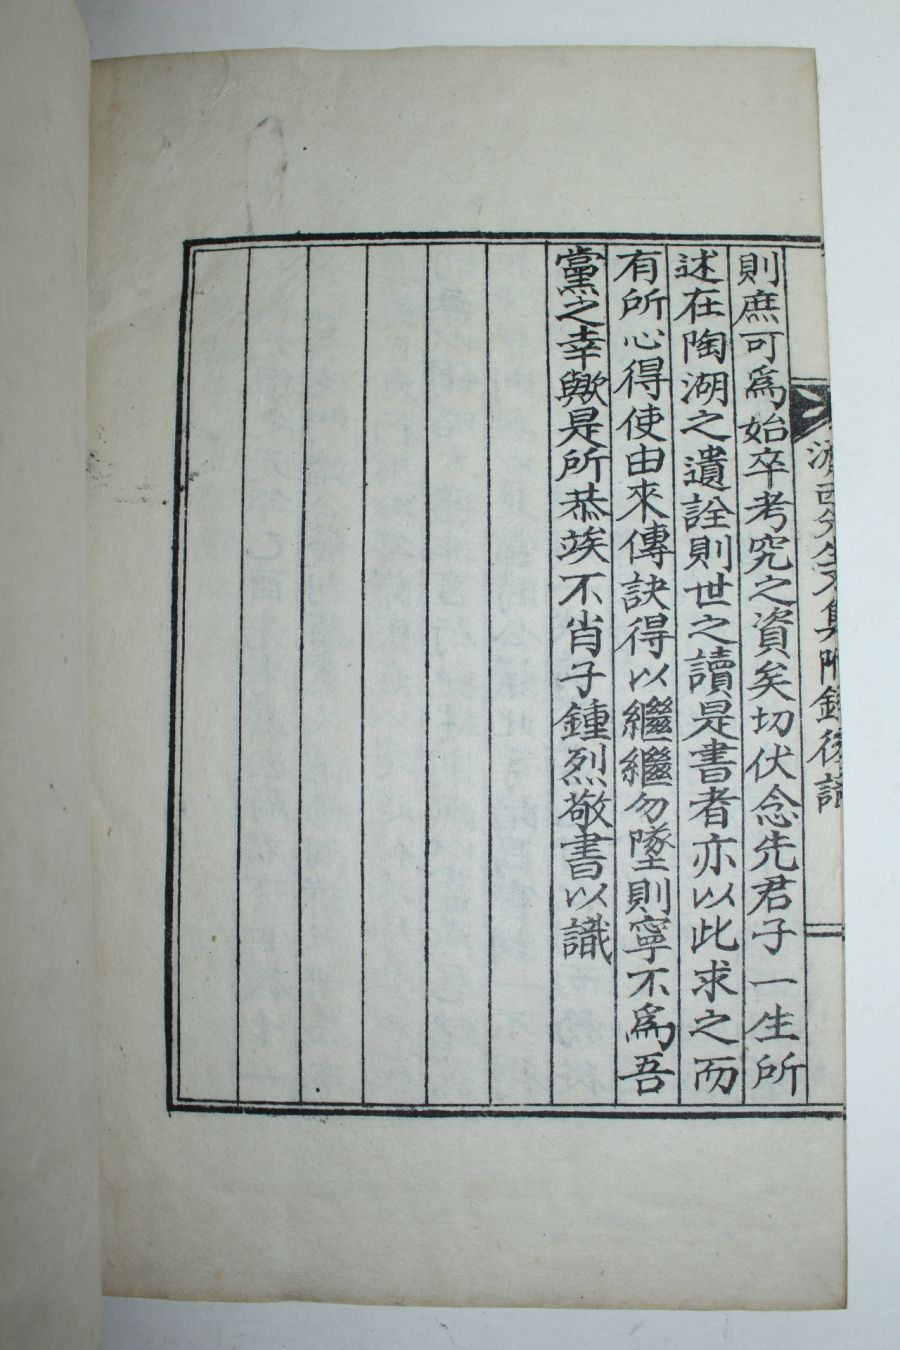 則庶可爲始卒考究之資矣切伏念先君子一生所
述在陶湖之遺詮則世之讀是書者亦以此求之而
有所心得使由來傳訣得以繼繼勿墜則寧不爲吾
黨之幸歟是所恭竢不肖子鍾烈敬書以識
西先生文集附錄後識